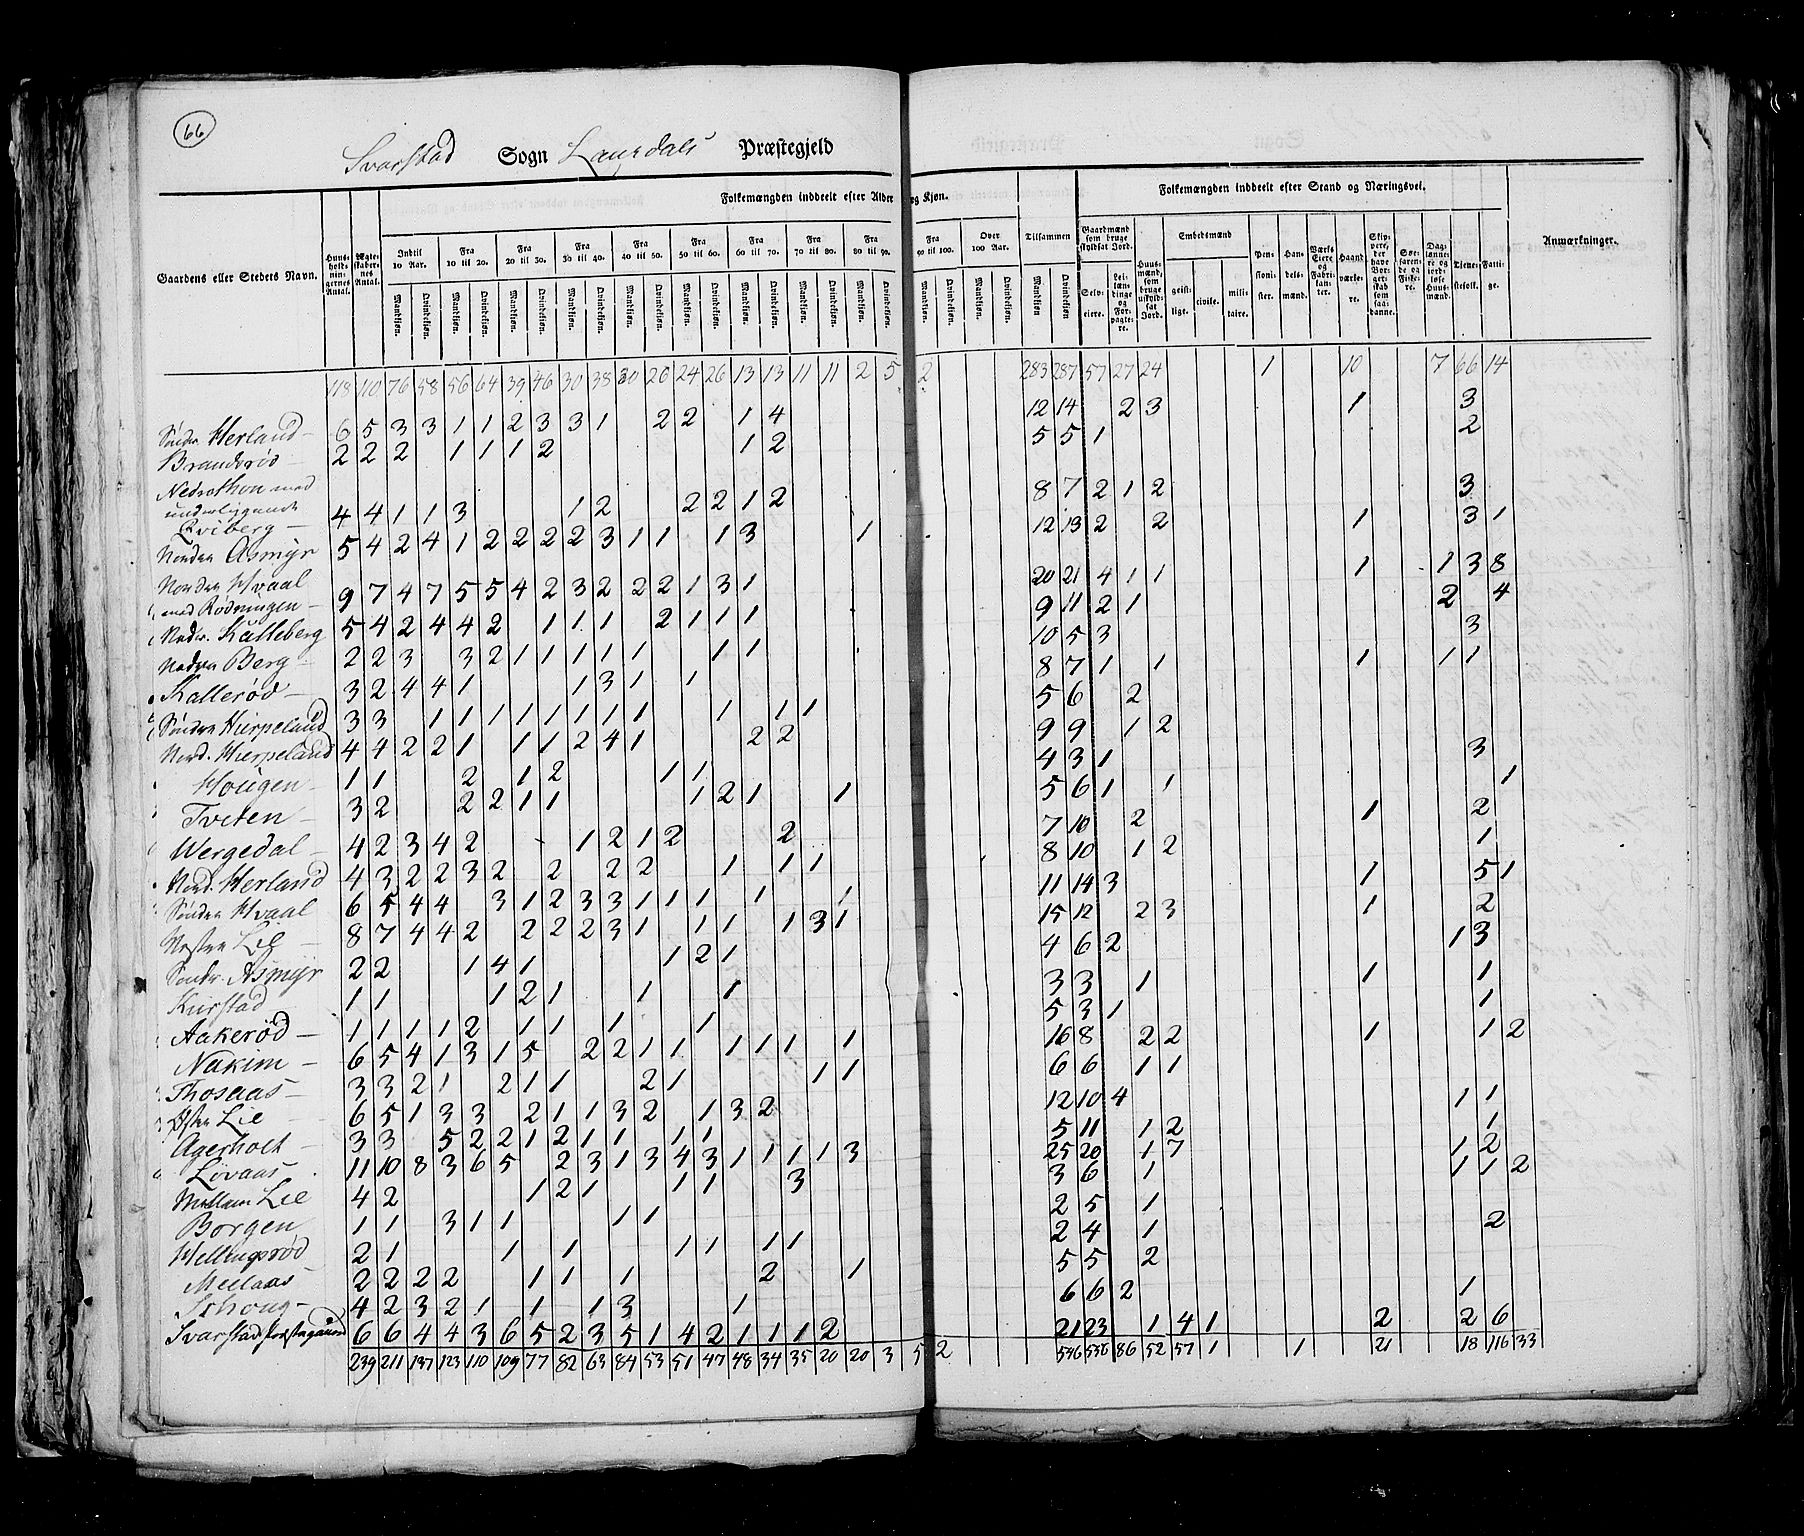 66
Svarstad Sogn Laurdals Præstegjeld
Folkemængden inddeelt efter Alder og Kjøn.
Folkemængden inddeelt efter Stand og Næringsvei.
Gaardens eller Stedets Navn.
Huus-holdnin-gernes Antal.
Ægte-skaber-nes Antal.
Indtil 10 Aar.
Fra 10 til 20.
Fra 20 til 30.
Fra 30 til 40.
Fra 40 til 50.
Fra 50 til 60.
Fra 60 til 70.
Fra 70 til 80.
Fra 80 til 90.
Fra 90 til 100.
Over 100 Aar.
Tilsammen
Mandkjøn. Qvindekjøn.
Gaardmænd som bruge skyldsat Jord.
Selv-eiere.
Lei-lændinge og For-pagte-re.
Huus-mænd, som bruge uskyld-sat Jord.
Embedsmænd
geist-lige.
civile.
mili-taire.
Pen-sioni-ster.
Han-dels-mænd.
Værks Eiere og Fabri-kan-ter.
Haand-værke-re.
Skip-pere, der have Bor-ger-skab som saa-danne.
Søe-faren-de og Fiske-re.
Dag-lønne-re og jord-løse Huus-mænd.
Tjene-stefolk.
Fatti-ge.
Anmærkninger.
118 110 76 58 56 64 39 46 30 38 30 26 24 26 13 13 11 11 2 5 2 283 287 57 27 24 1 10 7 66 14
Søndre Herland 6 5 3 3 1 1 2 3 3 1 2 2 1 4 12 14 2 3 1 3
Brandsrød 2 2 2 1 1 1 2 1 2 5 5 1 2
Nedrethon med
underliggende
Qviberg 4 4 1 1 3 1 2 2 2 1 2 8 7 2 1 2 3
Nordre Asmyr 5 4 2 4 1 2 2 2 2 3 1 1 1 3 1 12 13 2 2 1 3 1
Nordre Hvaal
med Rødningen 9 7 4 7 5 5 4 2 3 2 2 2 1 3 1 20 21 4 1 1 1 1 3 8
Nedr. Kalleberg 5 4 2 4 4 2 1 1 1 2 1 1 1 9 11 2 1 2 4
Nedre Berg 2 2 3 3 2 1 1 1 1 1 1 1 10 5 3 3
Kallerød 3 2 4 4 1 1 3 1 1 8 7 1 1 1 1 1
Søndre Hierpeland 3 3 1 1 1 1 1 1 1 1 1 1 1 5 6 2
Nord. Hierpeland 4 4 2 2 1 1 1 2 4 1 2 2 9 9 1 2
Hougen 1 1 2 1 2 1 1 4 3 1 3
Tveten 3 2 2 2 1 1 1 2 1 1 5 6 1 1 1
Wergedal 4 2 3 4 2 1 2 1 2 2 7 10 2 1 2
Nord. Herland 4 3 2 2 3 2 2 2 2 1 1 1 8 10 1 2 1
Søndre Hvaal 6 5 4 4 3 1 2 3 3 1 1 1 1 1 11 14 3 1 5 1
Vestre Lie 8 7 4 4 2 2 2 2 3 1 1 1 1 3 1 15 12 2 3 1 2
Søndr. Asmyr 2 2 1 4 1 1 2 1 4 6 2 1 3
Kurstad 1 1 1 2 1 1 1 3 3 1 1 1
Aakerød 1 1 1 1 2 1 1 1 1 5 3 1 1
Nakim 6 5 4 1 3 1 5 2 2 1 1 1 1 1 1 16 8 2 2 1 1 2
Thosaas 3 3 2 1 2 1 1 2 1 1 1 6 6 1 1
Østre Lie 6 5 1 3 3 2 1 1 3 2 1 3 2 12 10 4 1 1
Agerholt 3 3 5 2 2 1 2 1 1 1 1 5 11 1 2 1
Lovaas 11 10 8 3 6 5 2 3 1 3 4 3 1 1 1 1 3 25 20 1 7 1 2
Mellem Lie 4 2 1 2 1 1 1 3 3 6 1 1 1 2
Borgen 1 1 3 1 1 1 1 2 5 1
Wellingsrød 2 1 1 1 1 1 1 1 2 4 1 2
Meelaas 2 2 2 2 1 1 1 2 1 5 5 2
Schoug 4 2 3 2 1 1 1 3 1 6 6 2 1
Svarstadsprestegaard 6 6 4 4 3 6 5 2 3 5 1 4 2 1 1 1 2 21 23 1 4 1 2 2 6
239 211 137 123 110 109 77 82 63 84 53 51 47 48 34 35 20 20 3 5 2 536 536 86 52 57 1 1 21 18 116 33